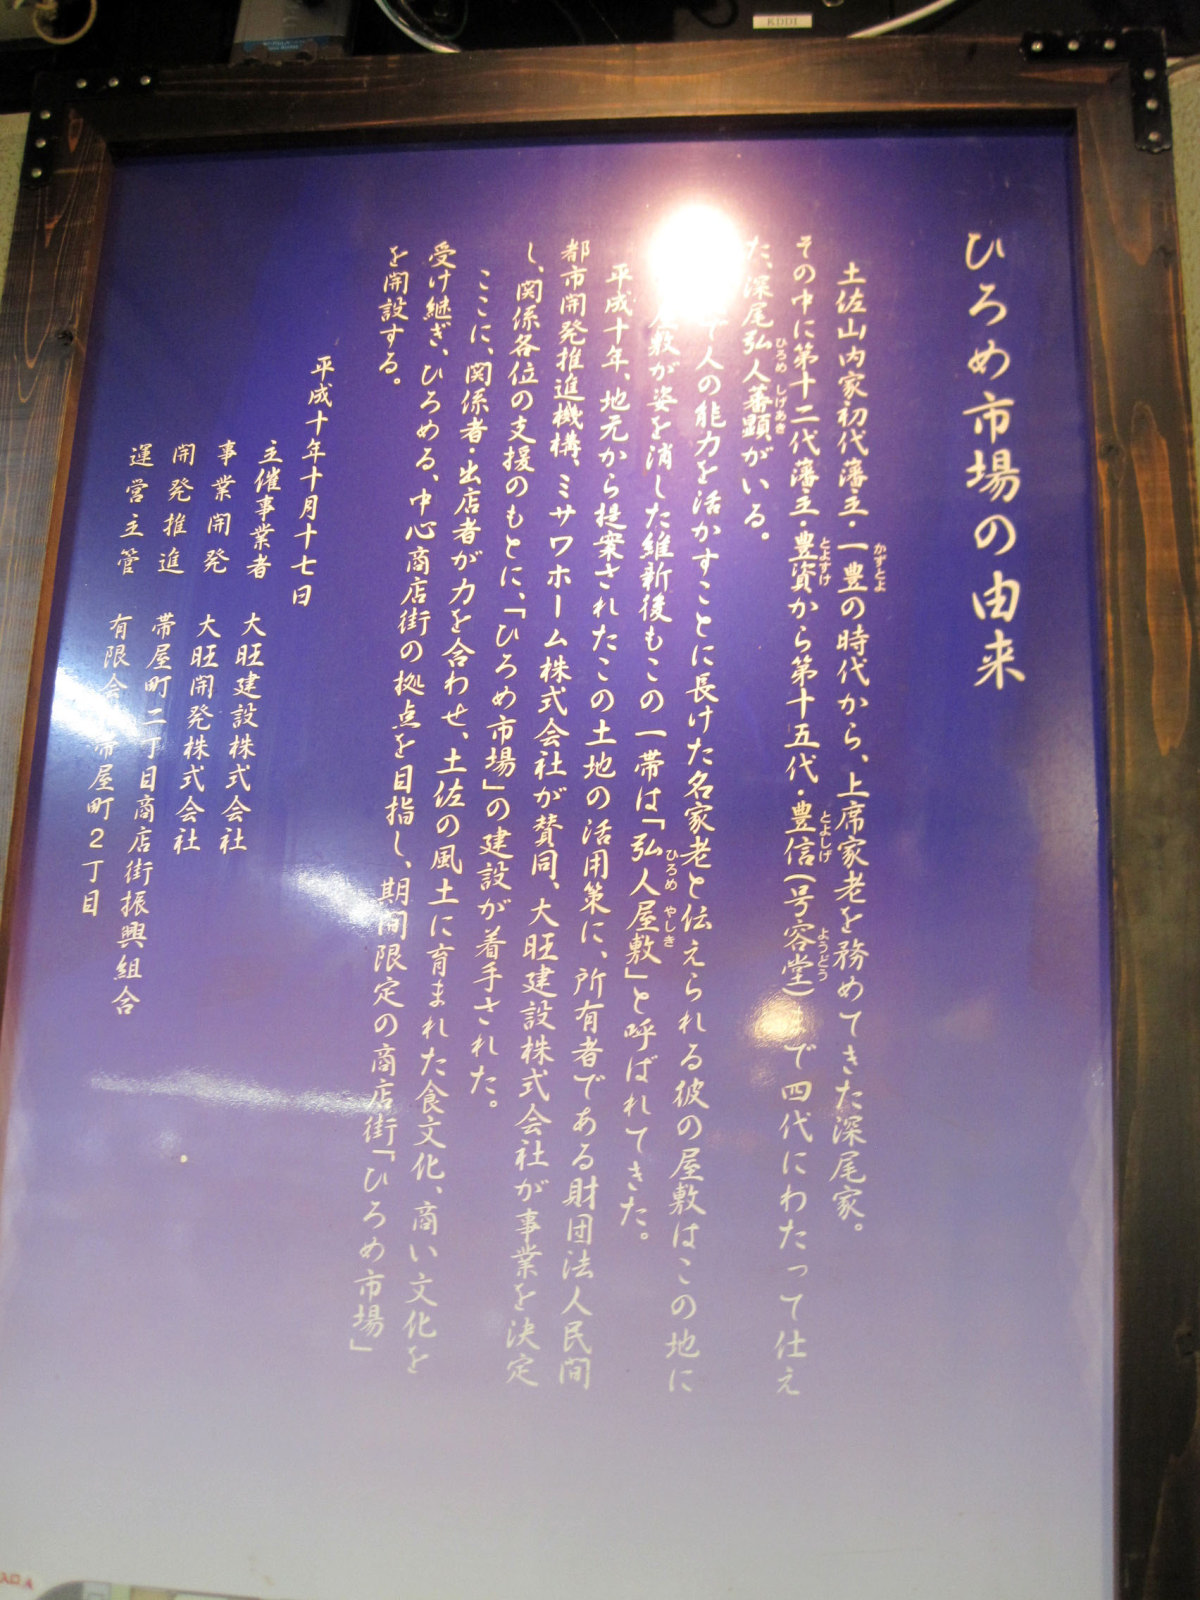 KDDI
ひろめ市場の由来
土佐山内家初代藩主・一豊の時代から、上席家老を務めてきた深尾家。
かずとよ
その中に第十二代藩主・豊資から第十五代・豊信(号容堂)まで四代にわたって仕え
とよすけ とよしげ ようどう
た、深尾弘人蕃顕がいる。
ひろめ しげあき
人の能力を活かすことに長けた名家老と伝えられる彼の屋敷はこの地に
屋敷が姿を消した維新後もこの一帯は「弘人屋敷」と呼ばれてきた。
ひろめ やしき
平成十年、地元から提案されたこの土地の活用策に、所有者である財団法人民間
都市開発推進機構、ミサワホーム株式会社が賛同、大旺建設株式会社が事業を決定
し、関係各位の支援のもとに、「ひろめ市場」の建設が着手された。
ここに、関係者・出店者が力を合わせ、土佐の風土に育まれた食文化、商い文化を
受け継ぎ、ひろめる、中心商店街の拠点を目指し、期間限定の商店街「ひろめ市場」
を開設する。
平成十年十月十七日
主催事業者 大旺建設株式会社
事業開発 大旺開発株式会社
開発推進 帯屋町二丁目商店街振興組合
運営主管 有限会 帯屋町2丁目